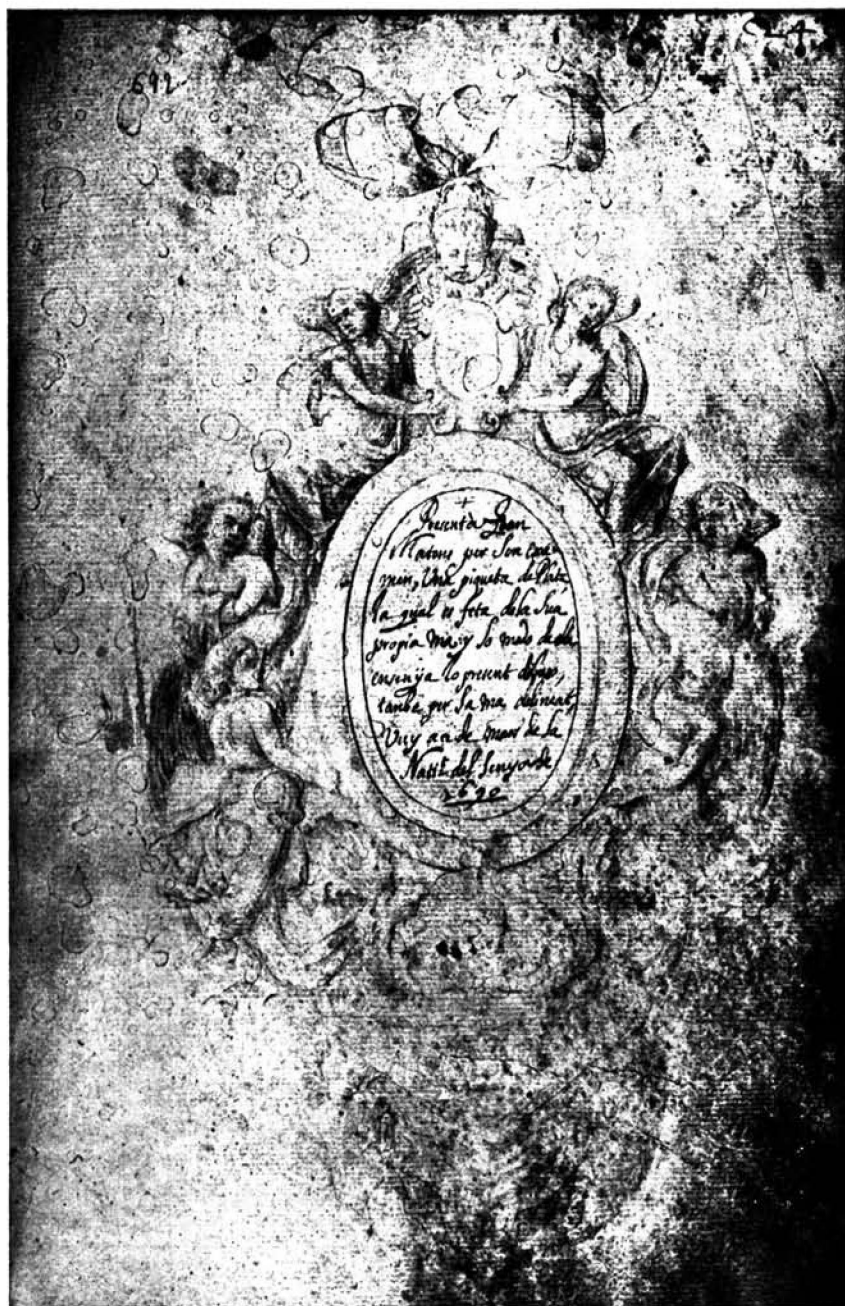 692
+
Presenta Joan
Matons per son exa-
men, Una piqueta de Plata
la qual es feta de la sua
propia ma, y lo modo de ella
ensenya lo present dibuix,
tambe per sa ma delineat,
Vuy als de mars de la
Natt. del Senyor de
1690